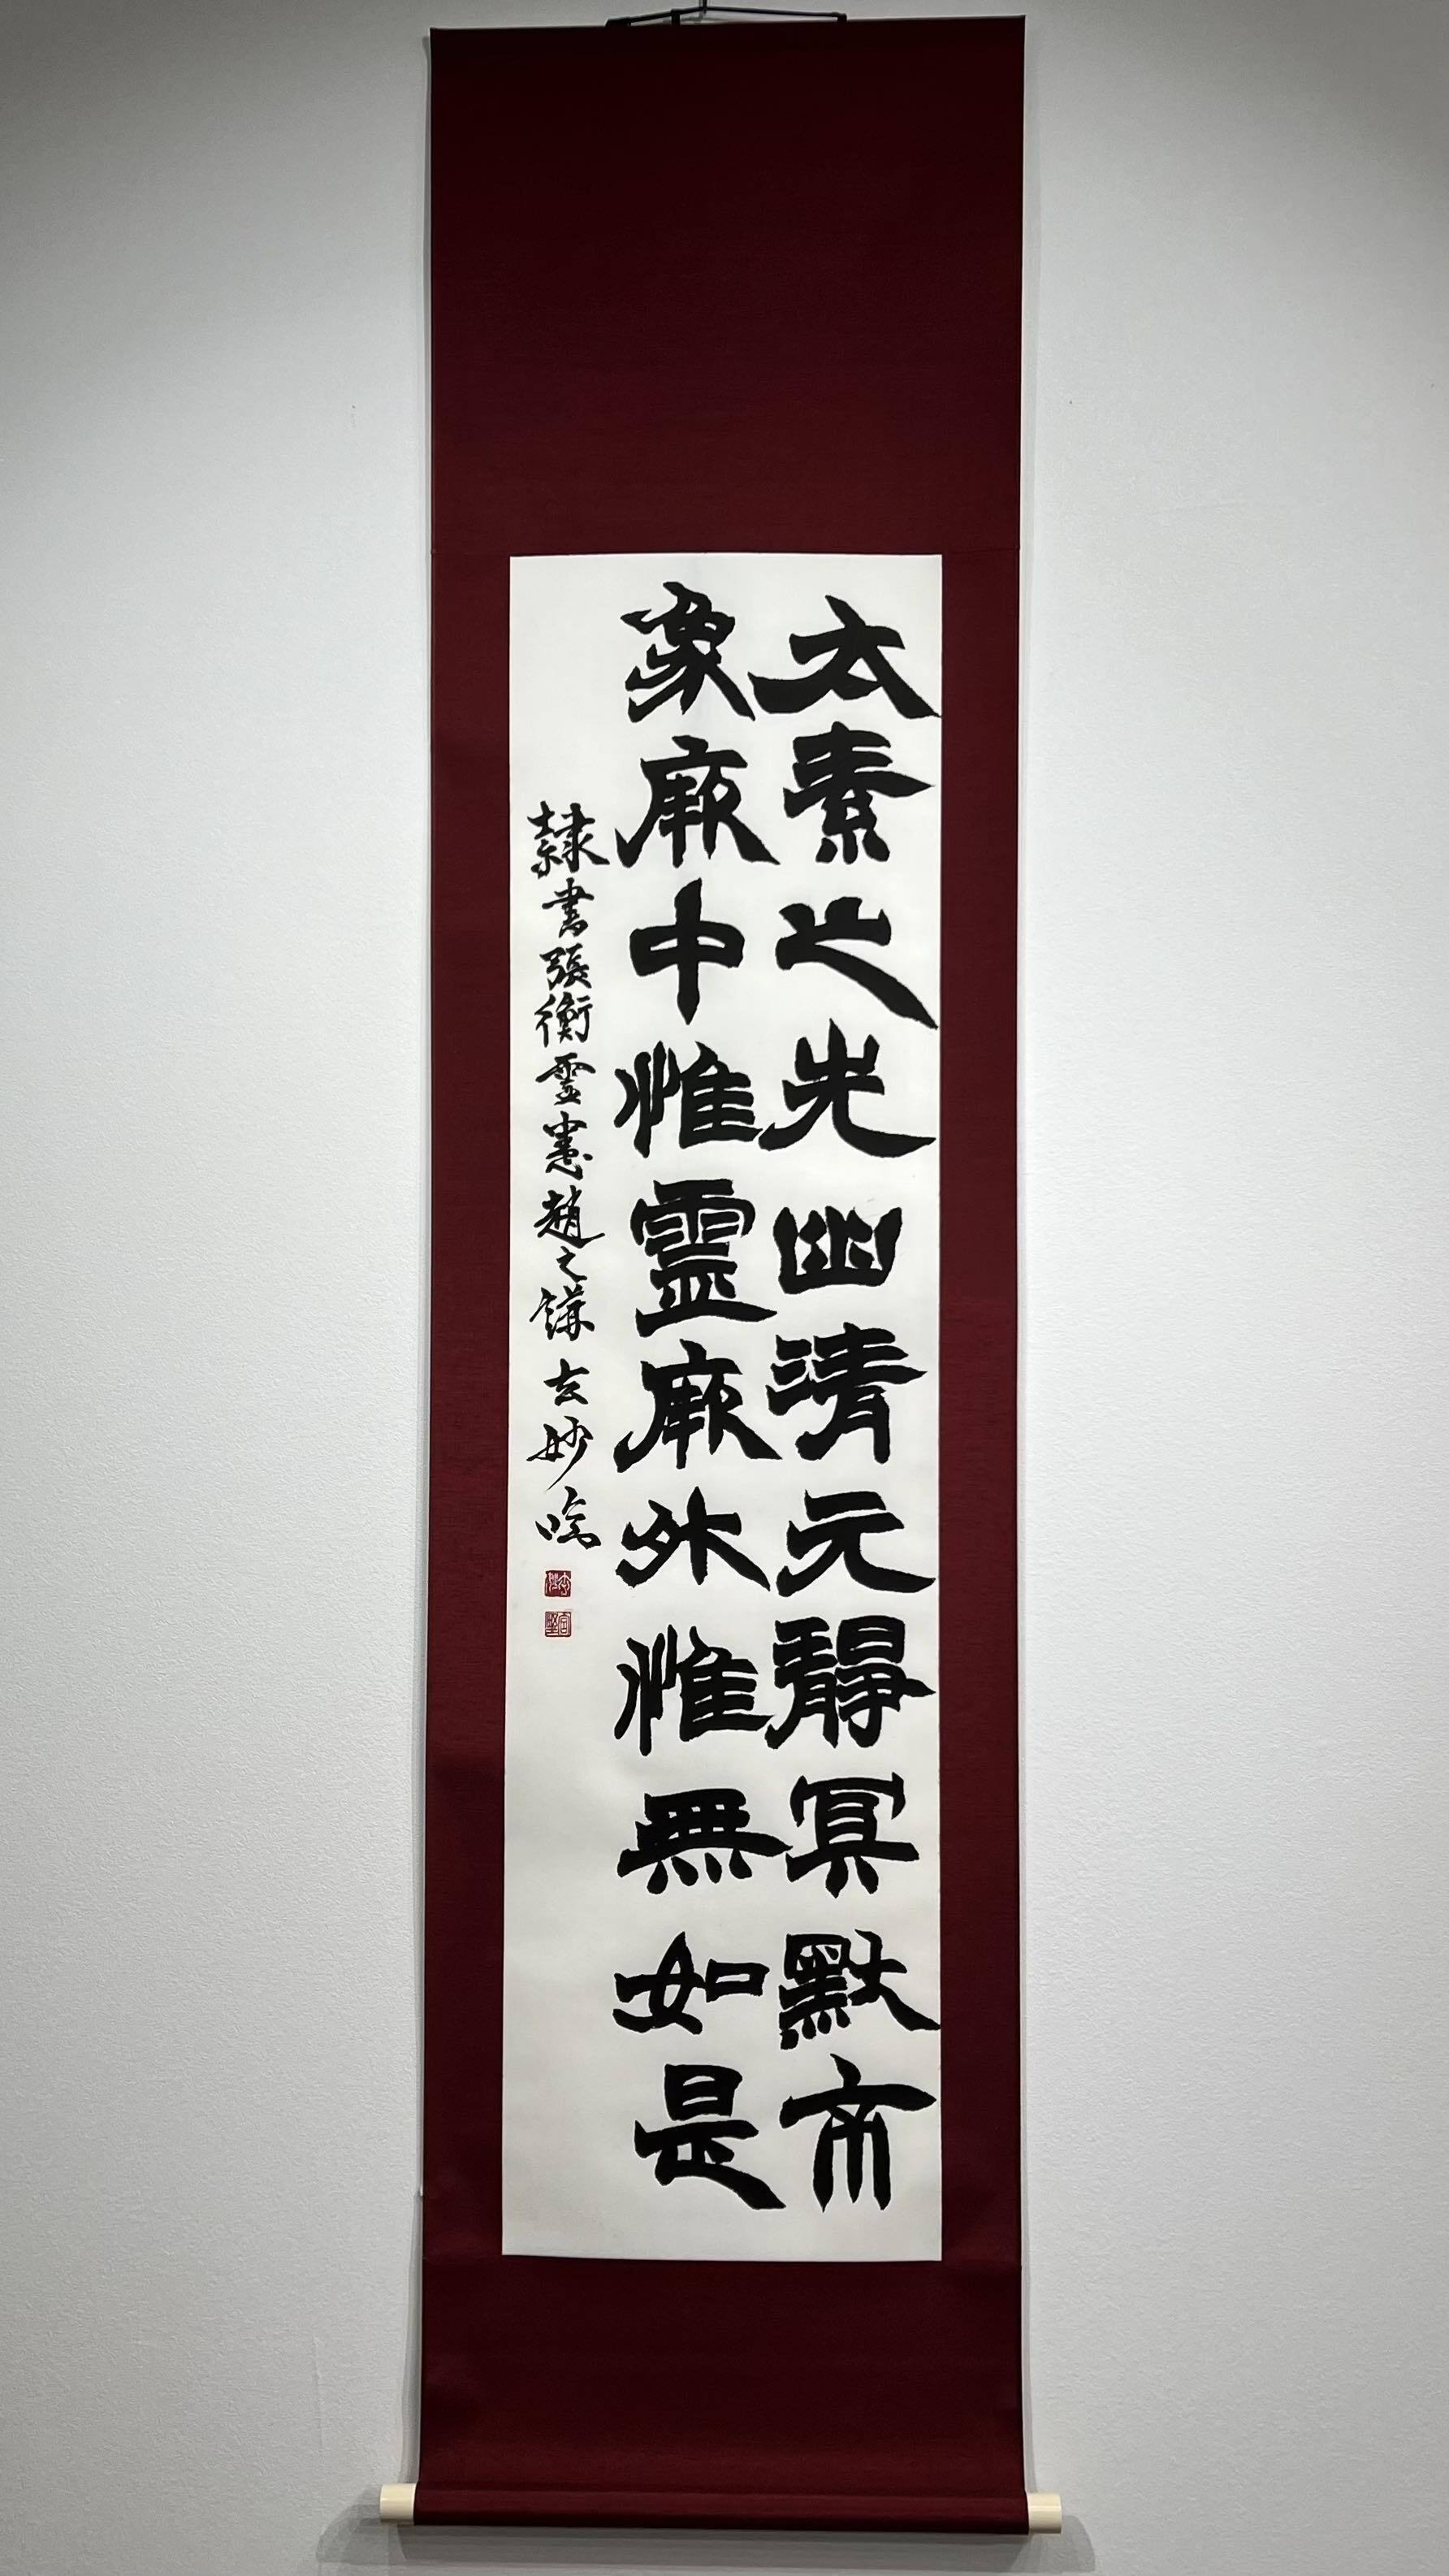 太素之光幽清元靜冥默不
象厥中惟靈厥外惟無如是
隸書張衡靈憲趙之謙 玄妙